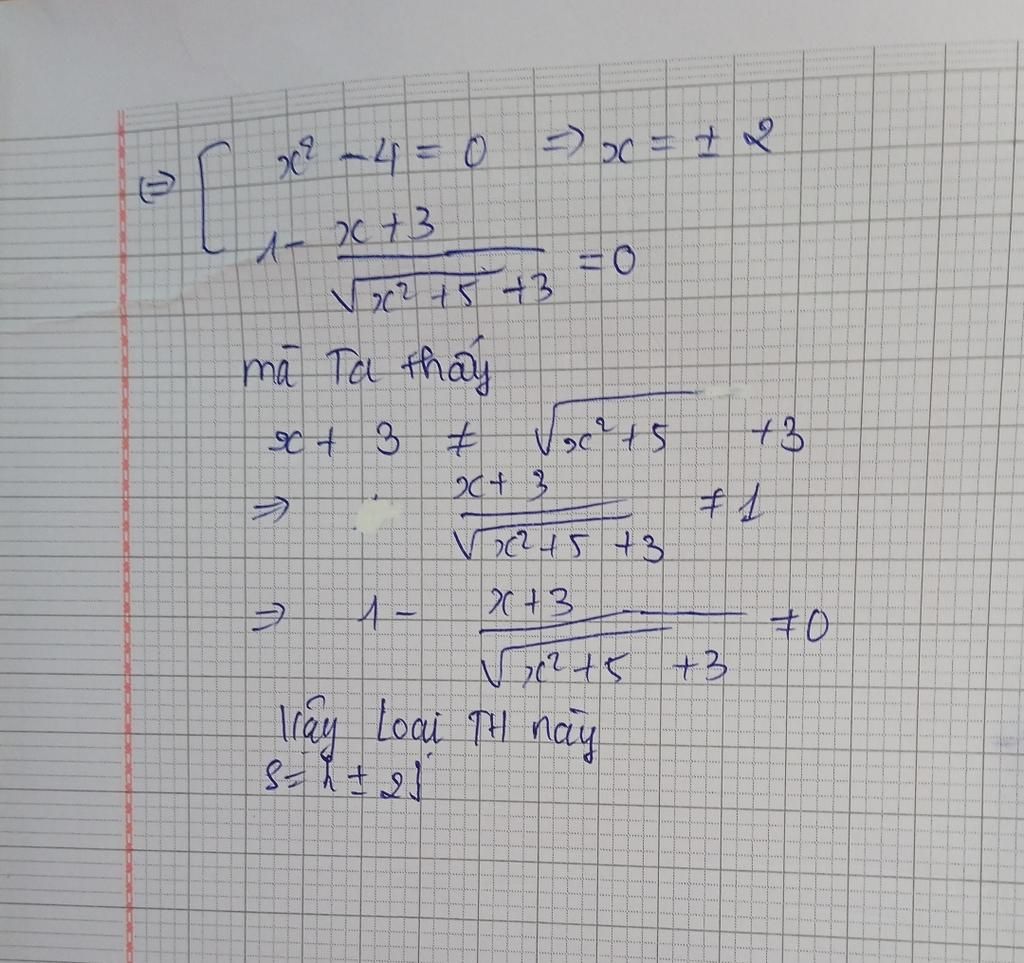 ⇔ [ x² - 4 = 0 ⇒ x = ± 2
1 - (x + 3)/(√(x² + 5) + 3) = 0
mà Ta thấy
x + 3 ≠ √(x² + 5) + 3
⇒ (x + 3)/(√(x² + 5) + 3) ≠ 1
⇒ 1 - (x + 3)/(√(x² + 5) + 3) ≠ 0
Vậy Loại TH này
S = { ± 2 }